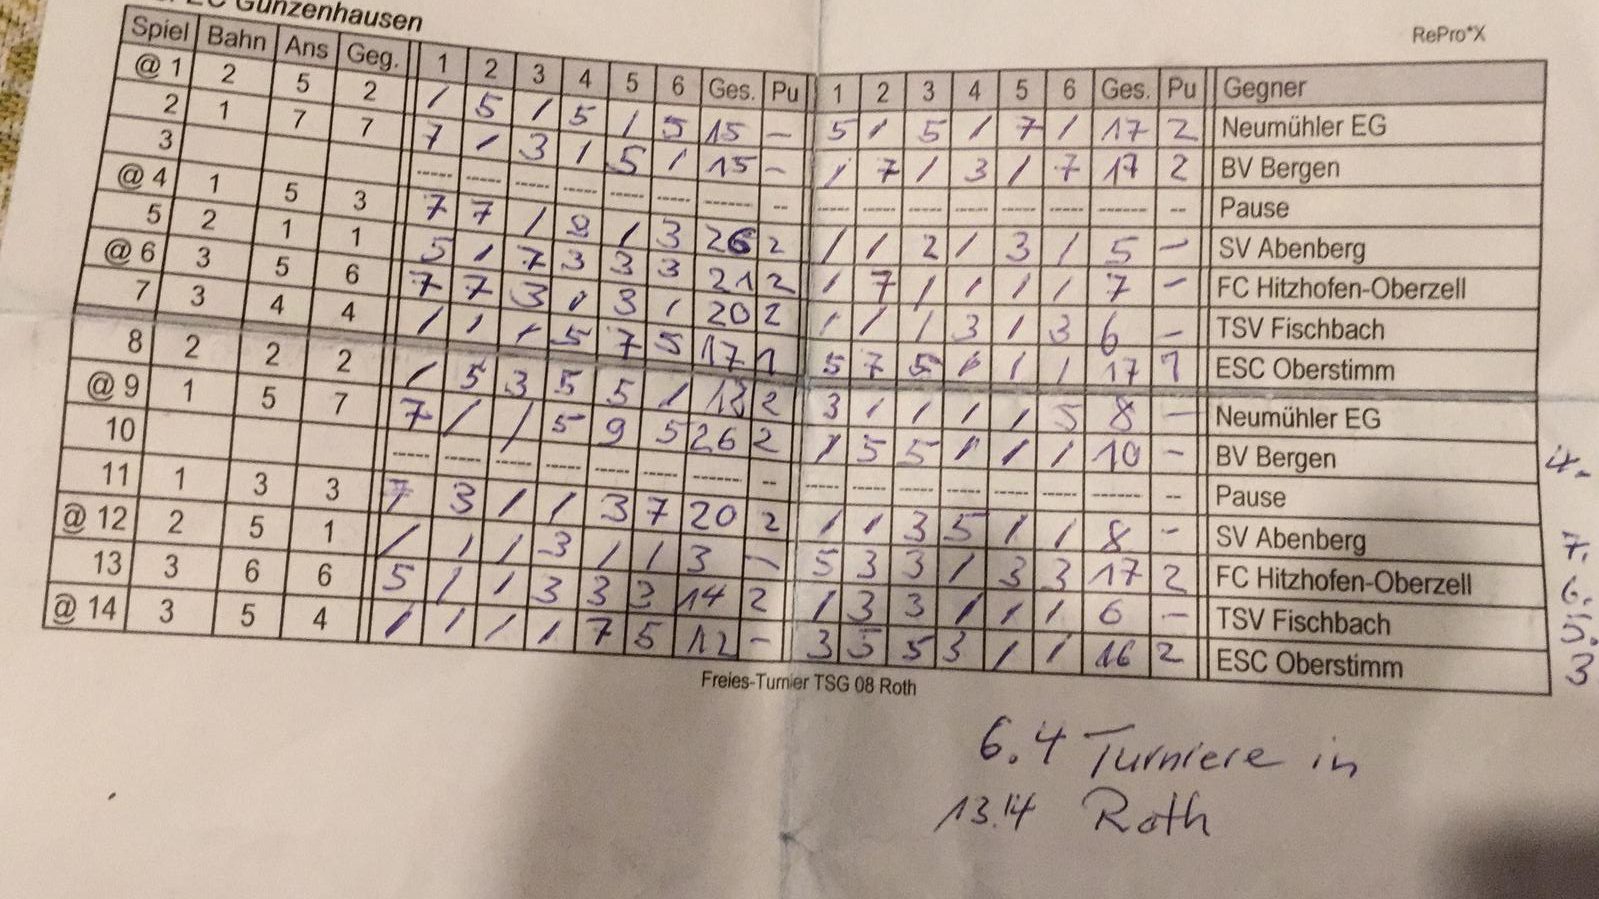 EC Gunzenhausen
RePro*X
Spiel Bahn Ans Geg. 1 2 3 4 5 6 Ges. Pu 1 2 3 4 5 6 Ges. Pu Gegner
@ 1 2 5 2 / 5 / 5 / 5 15 – 5 / 5 / 7 / 17 2 Neumühler EG
2 1 7 7 7 / 3 / 5 / 15 – / 7 / 3 / 7 17 2 BV Bergen
3 ----- ----- ----- ----- ----- ----- ------- -- ----- ----- ----- ----- ----- ----- ------- -- Pause
@ 4 1 5 3 7 7 / 8 / 3 26 2 / / 2 / 3 / 5 – SV Abenberg
5 2 1 1 5 / 7 3 3 3 21 2 / 7 / / / / 7 – FC Hitzhofen-Oberzell
@ 6 3 5 6 7 7 3 / 3 / 20 2 / / / 3 / 3 6 – TSV Fischbach
7 3 4 4 / / / 5 7 5 17 1 5 7 5 / / / 17 1 ESC Oberstimm
8 2 2 2 / 5 3 5 5 / 18 2 3 / / / / 5 8 – Neumühler EG
@ 9 1 5 7 7 / / 5 9 5 26 2 / 5 5 / / / 10 – BV Bergen
10 ----- ----- ----- ----- ----- ----- ------- -- ----- ----- ----- ----- ----- ----- ------- -- Pause
11 1 3 3 7 3 / / 3 7 20 2 / / 3 5 / / 8 – SV Abenberg
@ 12 2 5 1 / / / 3 / / 3 – 5 3 3 / 3 3 17 2 FC Hitzhofen-Oberzell
13 3 6 6 5 / / 3 3 3 14 2 / 3 3 / / / 6 – TSV Fischbach
@ 14 3 5 4 / / / / 7 5 12 – 3 5 5 3 / / 16 2 ESC Oberstimm
7.
6.
5.
3
Freies-Turnier TSG 08 Roth
6.4 Turniere in
13.14 Roth